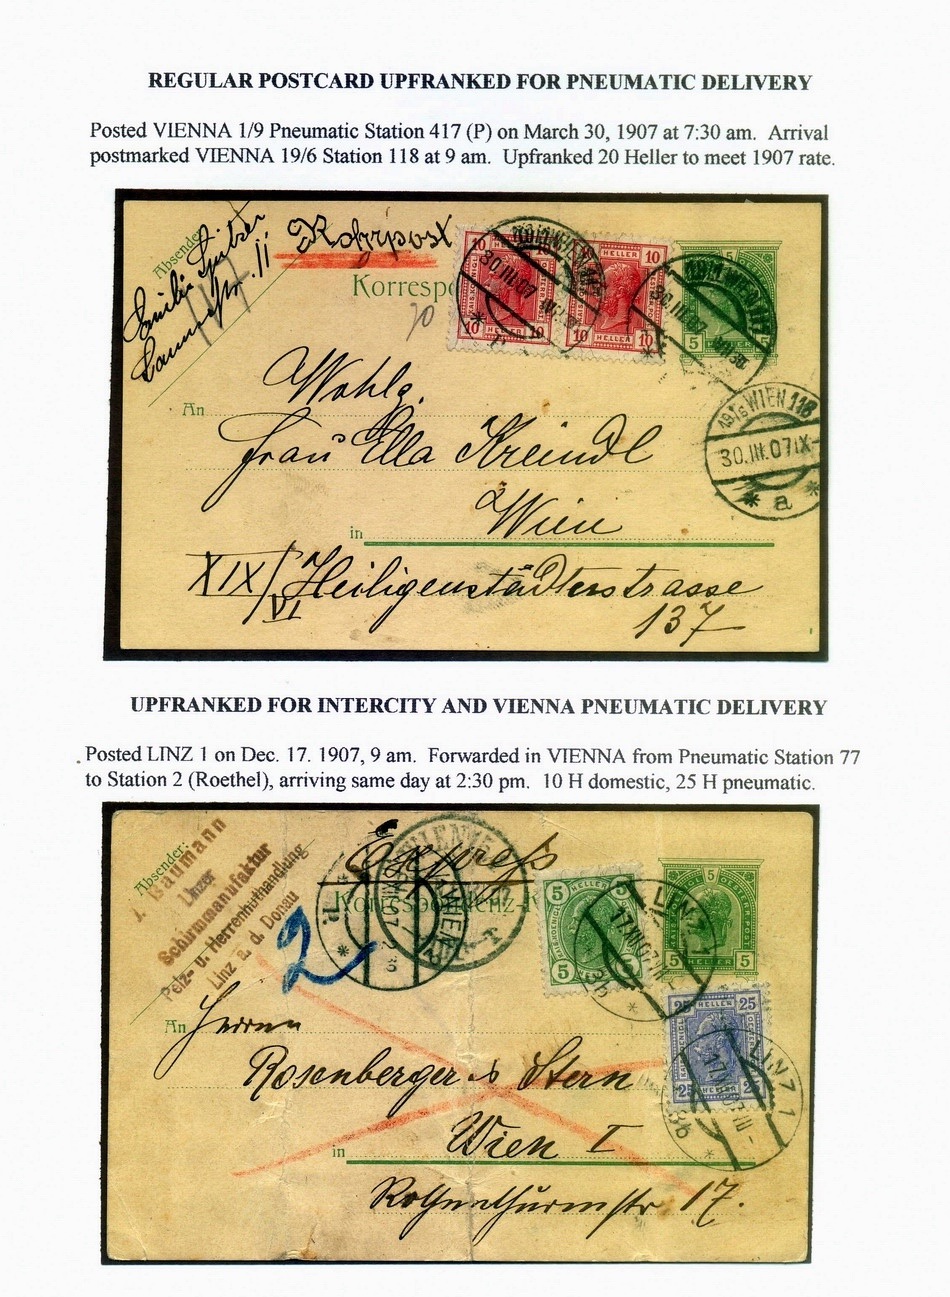 REGULAR POSTCARD UPFRANKED FOR PNEUMATIC DELIVERY
Posted VIENNA 1/9 Pneumatic Station 417 (P) on March 30, 1907 at 7:30 am. Arrival
postmarked VIENNA 19/6 Station 118 at 9 am. Upfranked 20 Heller to meet 1907 rate.
Absender
Emilie Spitzer
11
Rohrpost
Korrespo
10 HELLER 10
10 10
10
HELLER
10 10
5
5
30.III.07
30.III.07
19/6 WIEN 118
30.III.07 IX-
* a *
Wohlg.
An Frau Ella Kreindl
in Wien
XIX/VI Heiligenstädterstrasse
137
UPFRANKED FOR INTERCITY AND VIENNA PNEUMATIC DELIVERY
Posted LINZ 1 on Dec. 17. 1907, 9 am. Forwarded in VIENNA from Pneumatic Station 77
to Station 2 (Roethel), arriving same day at 2:30 pm. 10 H domestic, 25 H pneumatic.
Absender:
J. Baumann
Linzer
Schirmmanufaktur
Pelz- u. Herrenhuthandlung
Linz a. d. Donau
Express
Korrespondenz-K
2
WIEN
5 HELLER 5
5 5
5
5 HELLER 5
25 HELLER 25
25 25
LINZ 1
17.XII.07
8b
LINZ 1
8b
An Herren
Rosenberger & Stern
in Wien I
Rothenthurmstr 17.